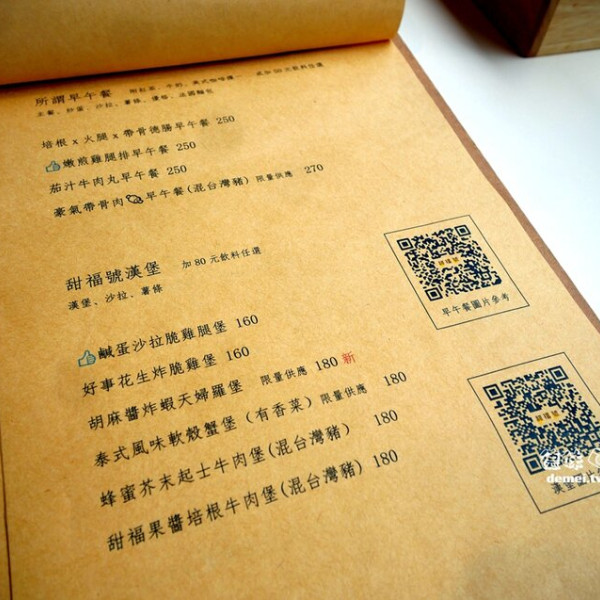 所謂早午餐 附紅茶、牛奶、美式咖啡擇一 或加80元飲料任選
主餐、炒蛋、沙拉、薯條、優格、法國麵包
培根x火腿x帶骨德腸早午餐 250
嫩煎雞腿排早午餐 250
茄汁牛肉丸早午餐 250
豪氣帶骨肉早午餐(混台灣豬) 限量供應 270
早午餐圖片參考
甜福號漢堡 加80元飲料任選
漢堡、沙拉、薯條
鹹蛋沙拉脆雞腿堡 160
好事花生炸脆雞堡 160
胡麻醬炸蝦天婦羅堡 限量供應 180 新
泰式風味軟殼蟹堡(有香菜) 限量供應 180
蜂蜜芥末起士牛肉堡(混台灣豬) 180
甜福果醬培根牛肉堡(混台灣豬) 180
漢堡
demei.tw